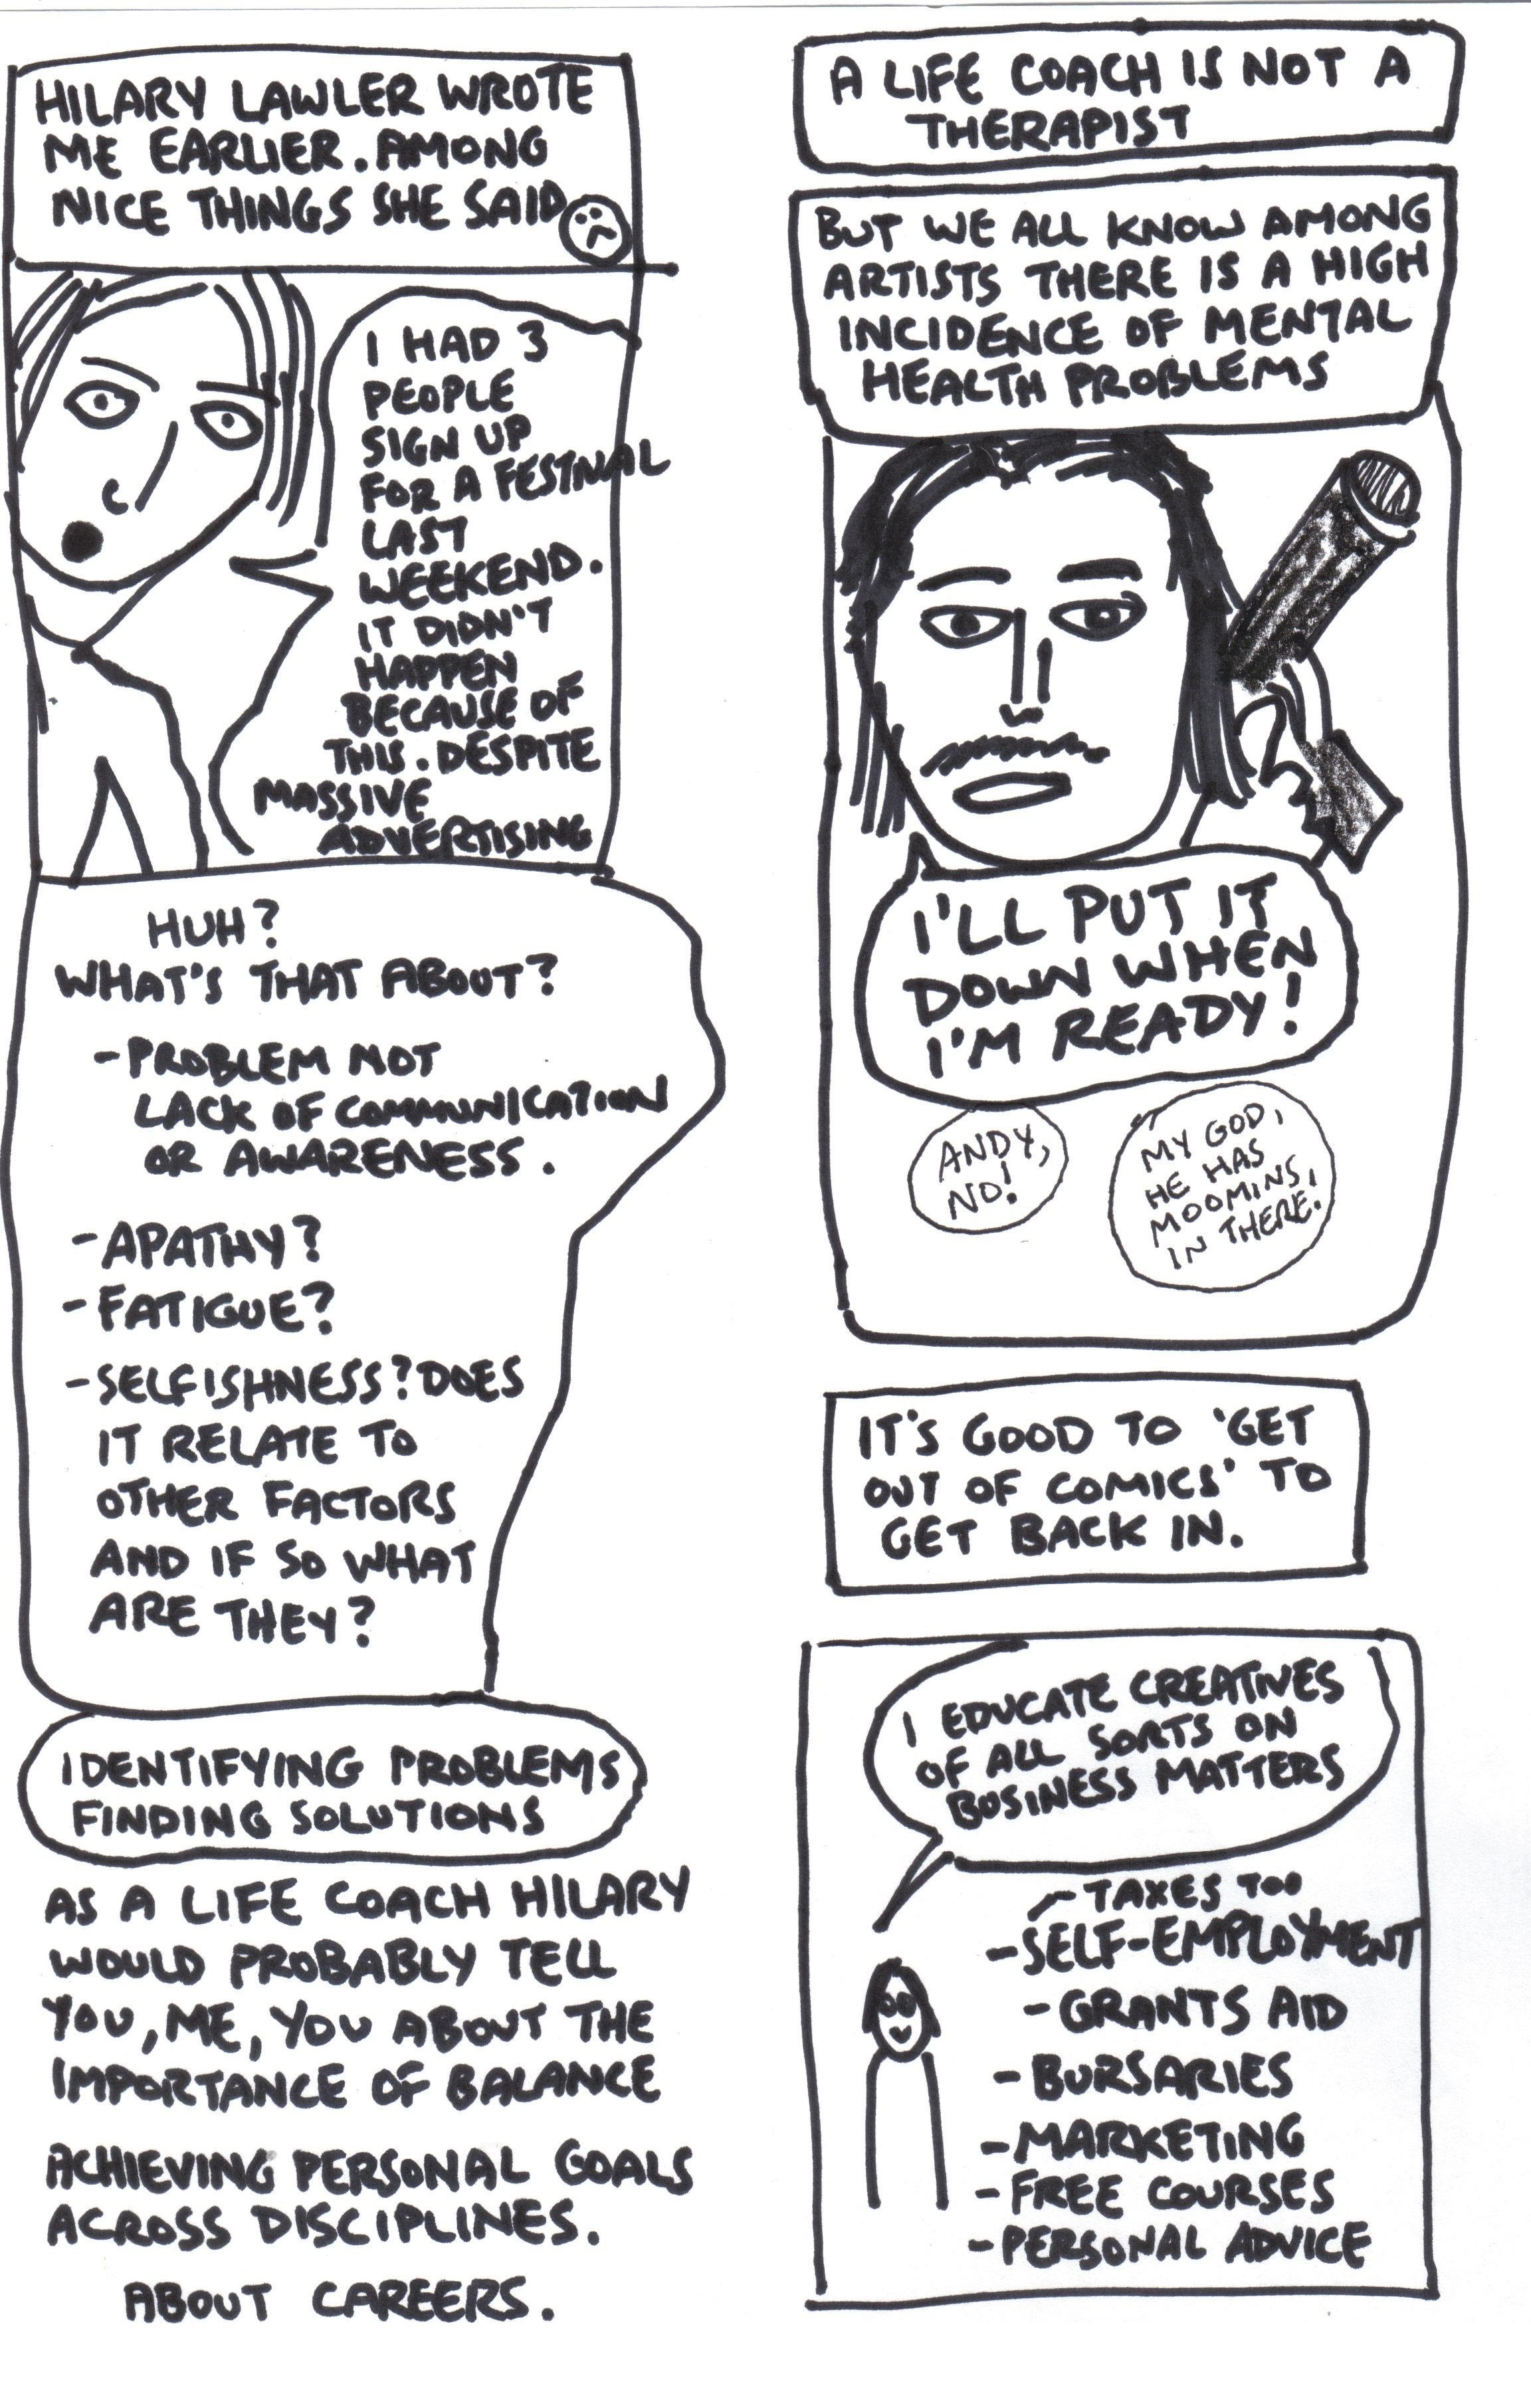 HILARY LAWLER WROTE
ME EARLIER. AMONG
NICE THINGS SHE SAID
I HAD 3
PEOPLE
SIGN UP
FOR A FESTIVAL
LAST
WEEKEND.
IT DIDN'T
HAPPEN
BECAUSE OF
THIS. DESPITE
MASSIVE
ADVERTISING
HUH?
WHAT'S THAT ABOUT?
-PROBLEM NOT
LACK OF COMMUNICATION
OR AWARENESS.
-APATHY?
-FATIGUE?
-SELFISHNESS? DOES
IT RELATE TO
OTHER FACTORS
AND IF SO WHAT
ARE THEY?
IDENTIFYING PROBLEMS
FINDING SOLUTIONS
AS A LIFE COACH HILARY
WOULD PROBABLY TELL
YOU, ME, YOU ABOUT THE
IMPORTANCE OF BALANCE
ACHIEVING PERSONAL GOALS
ACROSS DISCIPLINES.
ABOUT CAREERS.
A LIFE COACH IS NOT A
THERAPIST
BUT WE ALL KNOW AMONG
ARTISTS THERE IS A HIGH
INCIDENCE OF MENTAL
HEALTH PROBLEMS
I'LL PUT IT
DOWN WHEN
I'M READY!
ANDY,
NO!
MY GOD,
HE HAS
MOOMINS,
IN THERE.
IT'S GOOD TO 'GET
OUT OF COMICS' TO
GET BACK IN.
I EDUCATE CREATIVES
OF ALL SORTS ON
BUSINESS MATTERS
- TAXES TOO
-SELF-EMPLOYMENT
-GRANTS AID
-BURSARIES
-MARKETING
-FREE COURSES
-PERSONAL ADVICE